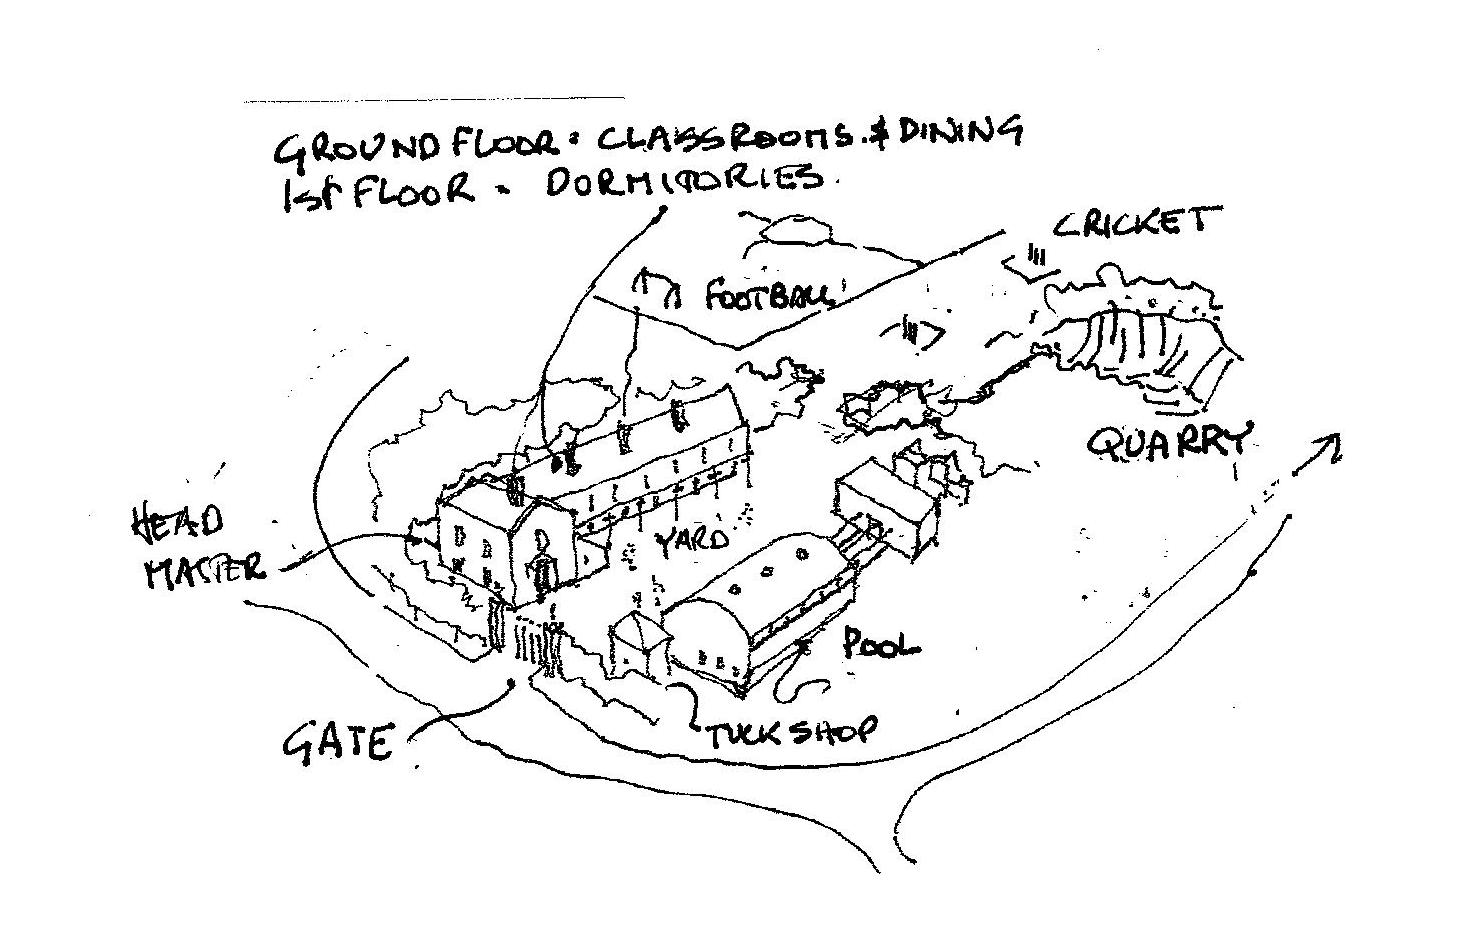 GROUND FLOOR: CLASSROOMS. & DINING
1st FLOOR - DORMITORIES.
CRICKET
FOOTBALL
QUARRY
HEAD
MASTER
YARD
POOL
TUCK SHOP
GATE